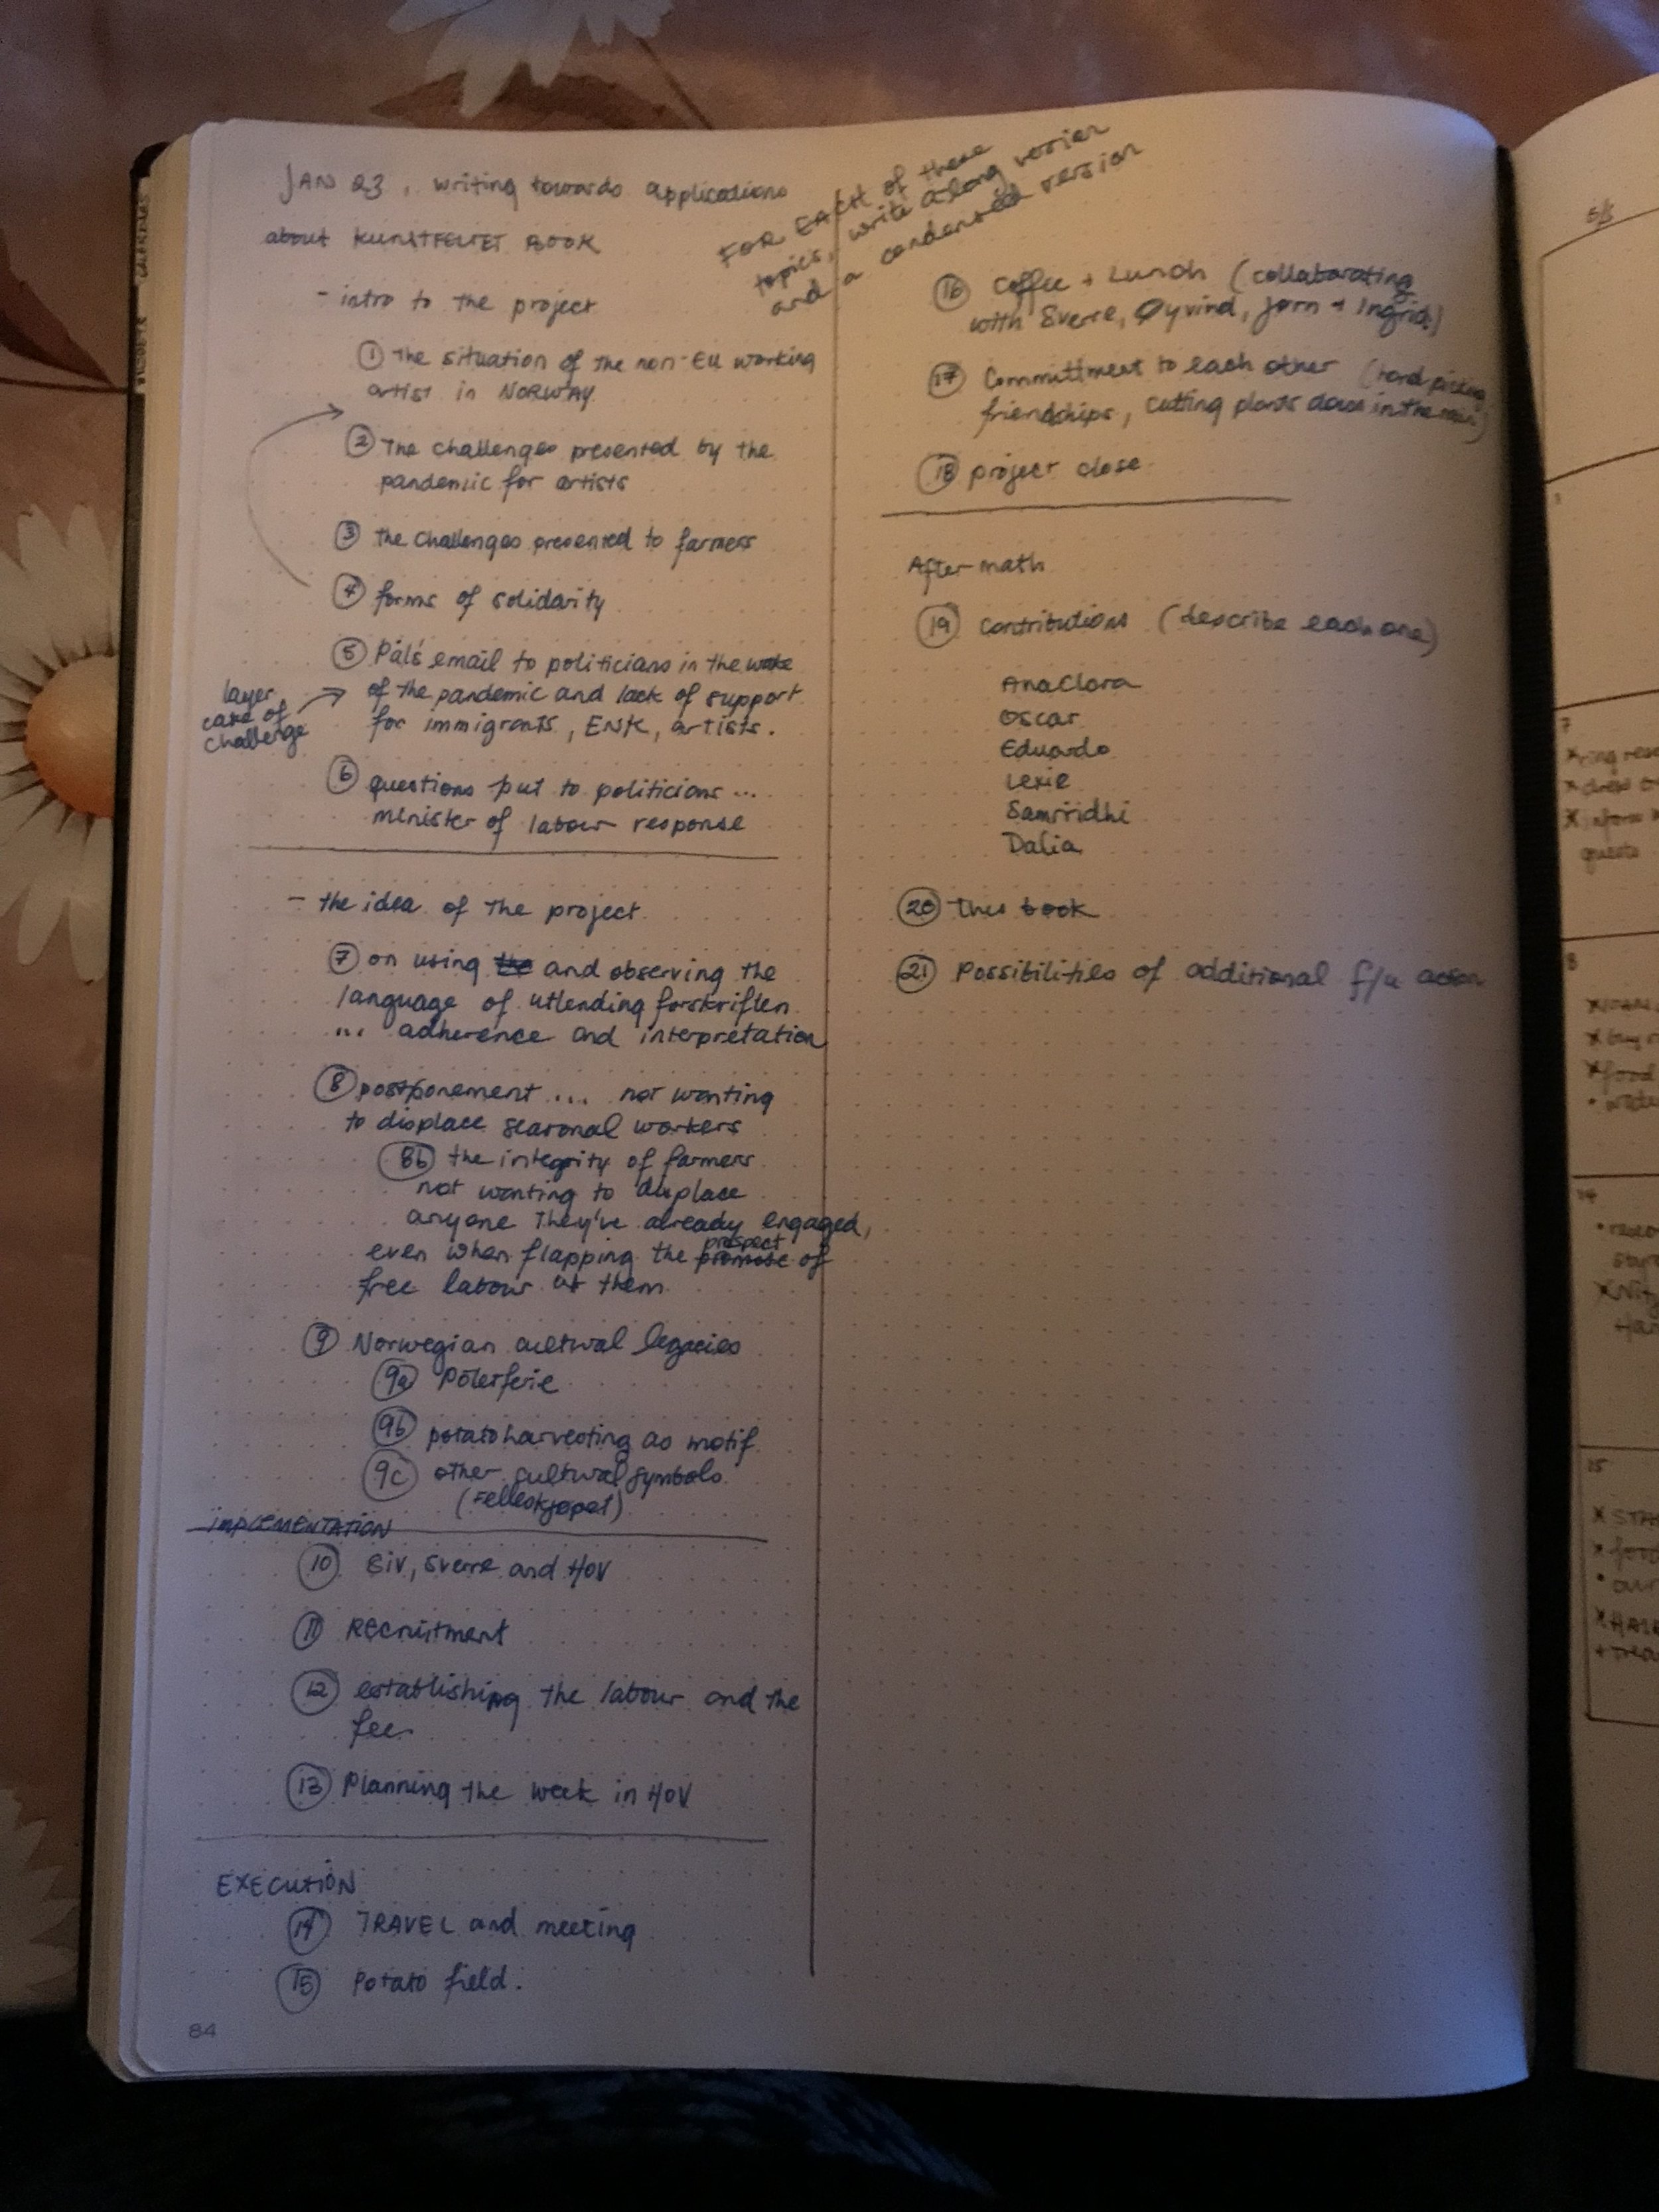 JAN 23, writing towards applications
about KUNSTFELTET BOOK
FOR EACH of these
topics, write a long version
and a condensed version
- intro to the project
① The situation of the non-EU working
artist in NORWAY
② The challenges presented by the
pandemic for artists
③ the challenges presented to farmers
④ forms of solidarity
⑤ Pål's email to politicians in the wake
of the pandemic and lack of support
for immigrants, ENK, artists.
layer
cake of
challenge
⑥ questions put to politicians ...
minister of labour response
- the idea of the project
⑦ on using the and observing the
language of utlending forskriften
... adherence and interpretation
⑧ postponement ... not wanting
to displace seasonal workers
8b the integrity of farmers
not wanting to displace
anyone they've already engaged,
prospect
even when flapping the promise of
free labour at them
⑨ Norwegian cultural legacies
9a Potetferie
9b potato harvesting as motif
9c other cultural symbols
(Felleskjøpet)
IMPLEMENTATION
⑩ Siv, Sverre and HOV
⑪ Recruitment
⑫ establishing the labour and the
fee
⑬ Planning the week in HOV
EXECUTION
⑭ TRAVEL and meeting
⑮ Potato field.
84
⑯ Coffee + Lunch (collaborating
with Sverre, Øyvind, Jørn + Ingrid)
⑰ Committment to each other (
friendships, cutting plants down in the
⑱ project close
Aftermath
⑲ Contributions (describe each one)
AnaClara
Oscar
Eduardo
Lexie
Samriddhi
Dalia
⑳ This book
㉑ Possibilities of additional f/u action
5/1
7
8
14
15